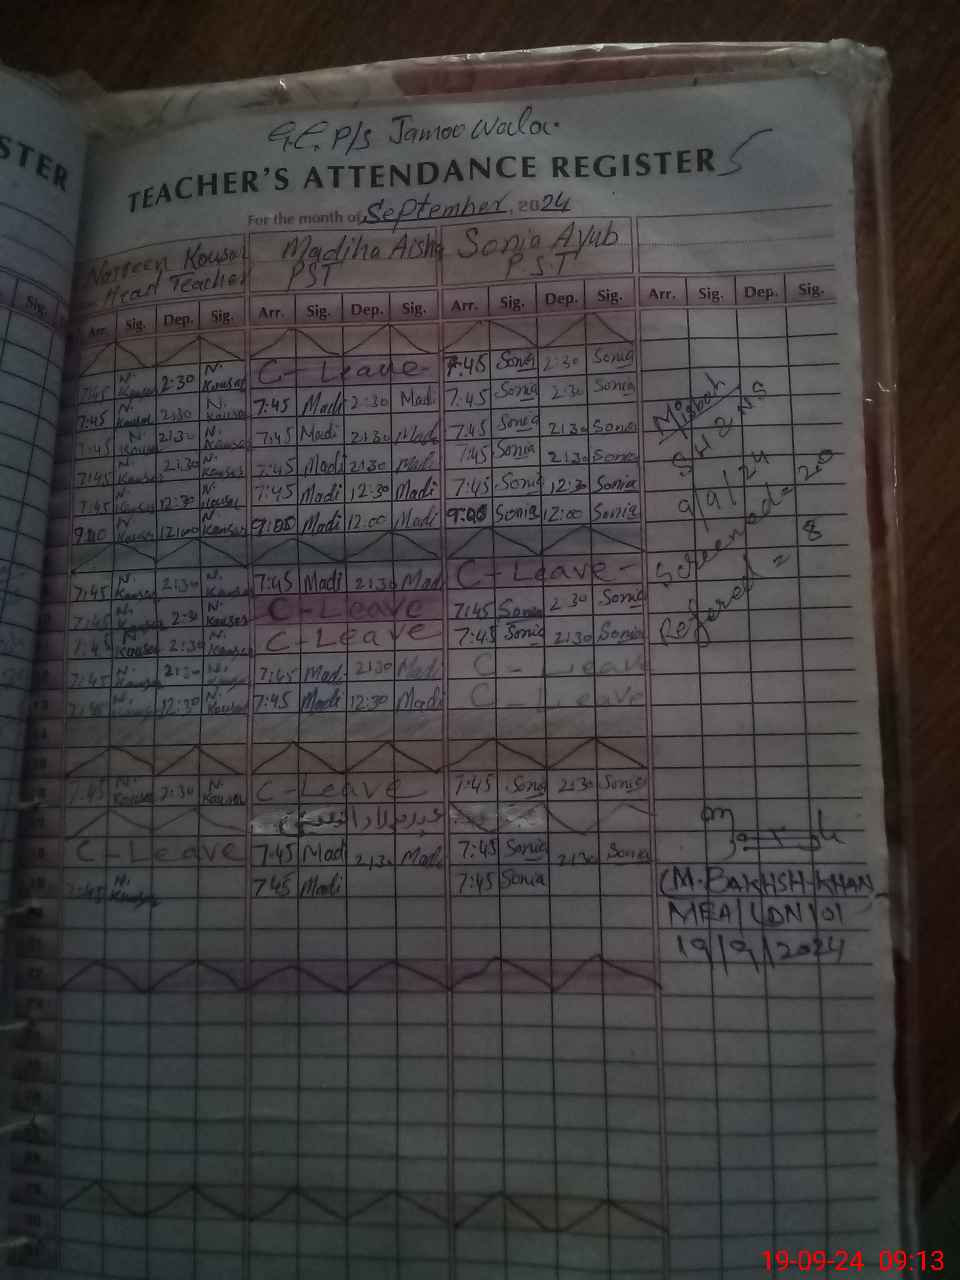 STER
G.E. P/S Jamoo Wala.
TEACHER'S ATTENDANCE REGISTER 5
For the month of September, 2024
Nasreen Kousar Madiha Aisha Sonia Ayub
Head Teacher PST P.S.T
Sig. Arr. Sig. Dep. Sig. Arr. Sig. Dep. Sig. Arr. Sig. Dep. Sig. Arr. Sig. Dep. Sig.
7:45 N. Kousar 2:30 N. Kousar C-Leave 7:45 Sonia 2:30 Sonia
7:45 N. Kousar 2:30 N. Kousar 7:45 Madi 2:30 Madi 7:45 Sonia 2:30 Sonia
7:45 N. Kousar 2:30 N. Kousar 7:45 Madi 2:30 Madi 7:45 Sonia 2:30 Sonia
7:45 N. Kousar 2:30 N. Kousar 7:45 Madi 2:30 Madi 7:45 Sonia 2:30 Sonia
7:45 N. Kousar 12:30 N. Kousar 7:45 Madi 12:30 Madi 7:45 Sonia 12:30 Sonia
9:00 N. Kousar 12:00 N. Kousar 9:00 Madi 12:00 Madi 9:00 Sonia 12:00 Sonia
7:45 N. Kousar 2:30 N. Kousar 7:45 Madi 2:30 Madi C-Leave-
7:45 N. Kousar 2:30 N. Kousar C-Leave 7:45 Sonia 2:30 Sonia
7:45 N. Kousar 2:30 N. Kousar C-Leave 7:45 Sonia 2:30 Sonia
7:45 N. Kousar 2:30 N. Kousar 7:45 Madi 2:30 Madi C-Leave
7:45 N. Kousar 12:30 N. Kousar 7:45 Madi 12:30 Madi C-Leave
7:45 N. Kousar 2:30 N. Kousar C-Leave 7:45 Sonia 2:30 Sonia
عید میلاد النبی
C-Leave 7:45 Madi 2:30 Madi 7:45 Sonia 2:30 Sonia
7:45 N. Kousar 7:45 Madi 7:45 Sonia
Misbah
SH & NS
9/9/24
Screened = 20
Refered = 8
(M. BAKHSH KHAN
MEA/LDN/01
19/9/2024
19-09-24 09:13